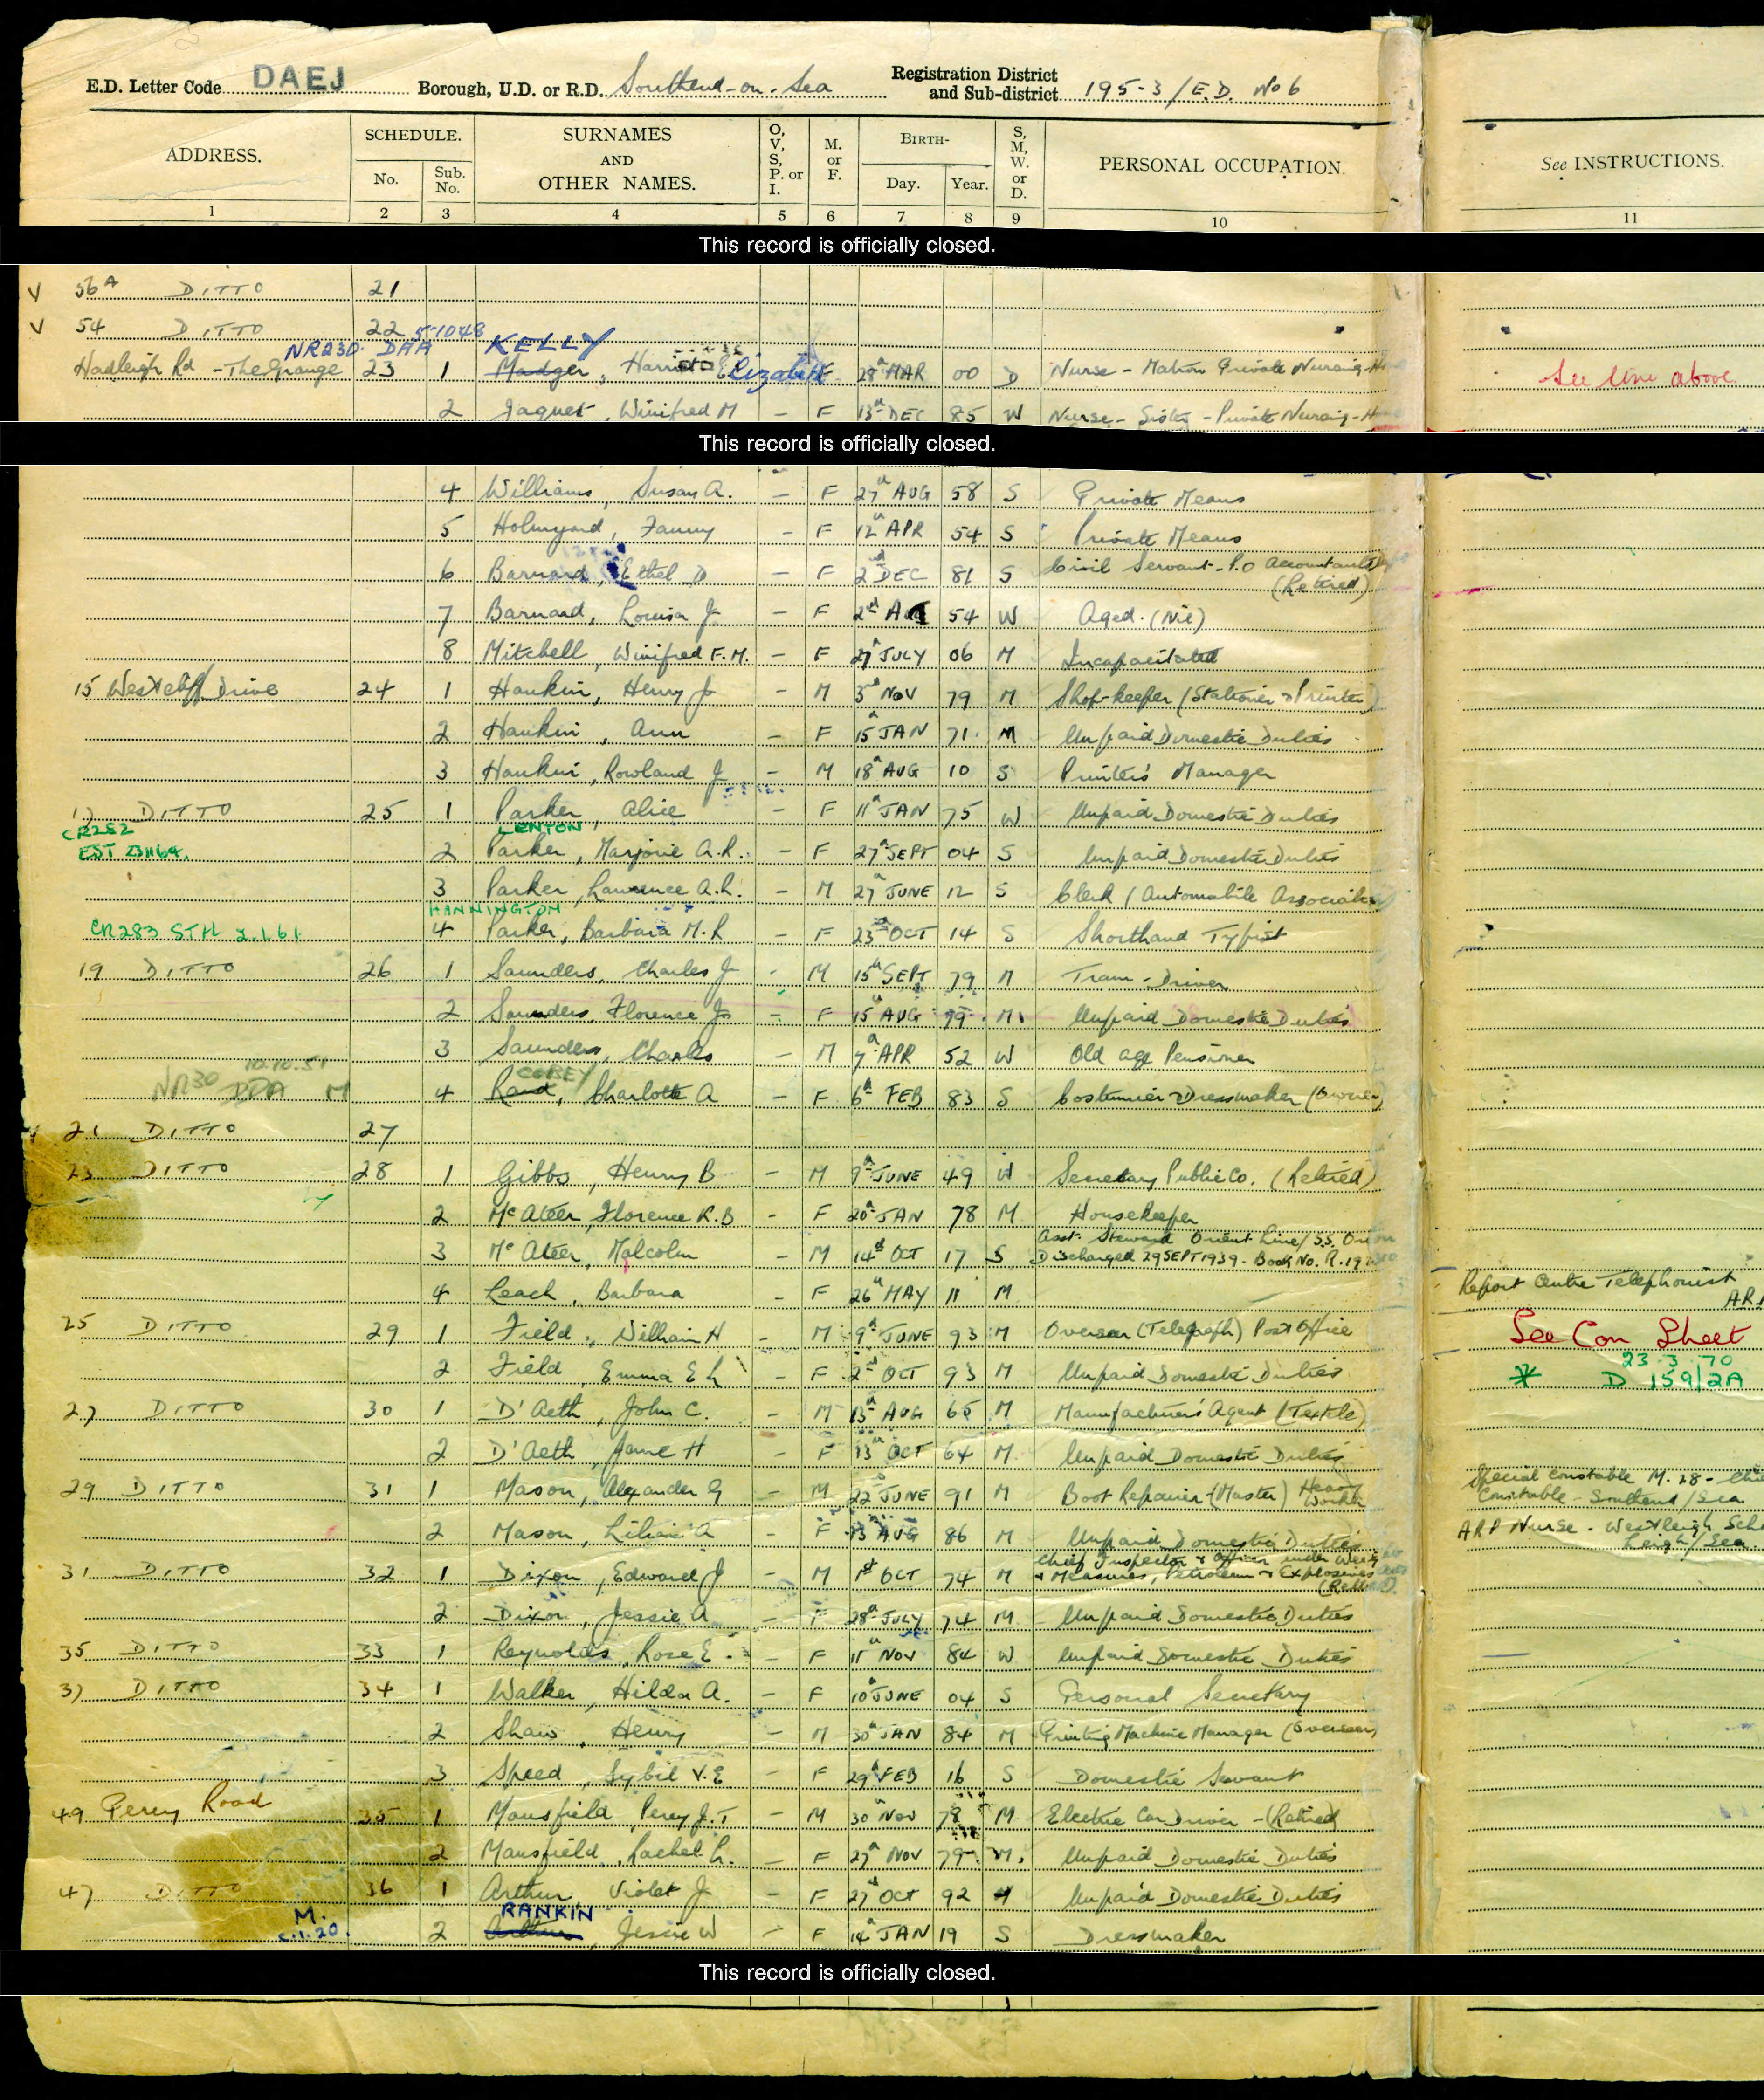 E.D. Letter Code DAEJ Borough, U.D. or R.D. Southend-on-Sea Registration District and Sub-district 195-3/E.D. No 6
ADDRESS. SCHEDULE. No. Sub. No. SURNAMES AND OTHER NAMES. O, V, S, P. or I. M. or F. BIRTH- Day. Year. S, M, W. or D. PERSONAL OCCUPATION. See INSTRUCTIONS.
1 2 3 4 5 6 7 8 9 10 11
This record is officially closed.
V 56A DITTO 21
V 54 DITTO 22 5-10-48
NR230 DAA KELLY
Hadleigh Rd - The Grange 23 1 Madger, Harriet Elizabeth F 28th MAR 00 D Nurse - Matron Private Nursing - See line above
2 Jaquet, Winifred M - F 13th DEC 85 W Nurse - Sister - Private Nursing -
This record is officially closed.
4 Williams, Susan A. - F 27th AUG 58 S Private Means
5 Holmyard, Fanny - F 12th APR 54 S Private Means
6 Barnard, Ethel D - F 2nd DEC 81 S Civil Servant - P.O (Retired)
7 Barnard, Louisa J - F 2nd 54 W Aged. (Nil)
8 Mitchell, Winifred F.M. - F 27th JULY 06 M Incapacitated
15 Westcliff Drive 24 1 Hankin, Henry J - M 3rd NOV 79 M Shop-keeper (Stationer & Printer)
2 Hankin, Ann - F 15th JAN 71 M Unpaid Domestic Duties
3 Hankin, Rowland J - M 18th AUG 10 S Printer's Manager
17 DITTO 25 1 Parker, Alice - F 11th JAN 75 W Unpaid Domestic Duties
CR282 LENTON
EST 231164. 2 Parker, Marjorie A.R. - F 27th SEPT 04 S Unpaid Domestic Duties
3 Parker, Lawrence A.R. - M 27 JUNE 12 S Clerk (Automobile Association)
HANNINGTON
CR283 STH 2.1.61 4 Parker, Barbara M.R - F 23rd OCT 14 S Shorthand Typist
19 DITTO 26 1 Saunders, Charles J - M 15th SEPT 79 M Tram-Driver
2 Saunders, Florence J - F 15th AUG 79 M Unpaid Domestic Duties
3 Saunders, Charles - M 7th APR 52 W Old age Pensioner
10.10.51 COBEY
NR30 DDA M 4 Rand, Charlotte A - F 6th FEB 83 S Costumier & Dressmaker (Owner)
21 DITTO 27
23 DITTO 28 1 Gibbs, Henry B - M 9th JUNE 49 W Secretary Public Co. (Retired)
2 McAteer, Florence R.B - F 20th JAN 78 M Housekeeper
3 McAteer, Malcolm - M 14th OCT 17 S Asst. Steward Orient Line/S.S. Orion
Discharged 29 SEPT 1939 - Book No. R.
4 Leach, Barbara - F 26th MAY 11 M Report Centre Telephonist
25 DITTO 29 1 Field, William H - M 9th JUNE 93 M Overseer (Telegraph) Post Office See Con Sheet
2 Field, Emma E L - F 2nd OCT 93 M Unpaid Domestic Duties 23.3.70 D 159/2A
27 DITTO 30 1 D'Aeth, John C. - M 13th AUG 65 M Manufacturer's Agent (Textile)
2 D'Aeth, Jane H - F 13th OCT 64 M Unpaid Domestic Duties
29 DITTO 31 1 Mason, Alexander G - M 22nd JUNE 91 M Boot Repairer (Master) Heavy Worker Special Constable M.28 - Constable - Southend/Sea
2 Mason, Lilian A - F 13 AUG 86 M Unpaid Domestic Duties ARP Nurse - Westleigh Leigh/Sea
31 DITTO 32 1 Dixon, Edward J - M 1st OCT 74 M Chief Inspector & Officer under Weights & Measures, Petroleum & Explosives
2 Dixon, Jessie A - F 28th JULY 74 M Unpaid Domestic Duties
35 DITTO 33 1 Reynolds, Rose E - F 11th NOV 84 W Unpaid Domestic Duties
37 DITTO 34 1 Walker, Hilda A. - F 10th JUNE 04 S Personal Secretary
2 Shaw, Henry - M 30th JAN 84 M Printing Machine Manager (Overseer)
3 Speed, Sybil V.E - F 29th FEB 16 S Domestic Servant
49 Percy Road 35 1 Mansfield, Percy J.T - M 30th NOV 78 M Electric Car Driver - (Retired)
2 Mansfield, Rachel L. - F 27th NOV 79 M. Unpaid Domestic Duties
47 DITTO 36 1 Arthur, Violet J - F 27 OCT 92 Unpaid Domestic Duties
M. RANKIN
2 Arthur, Jessie W - F 14th JAN 19 S Dressmaker
This record is officially closed.